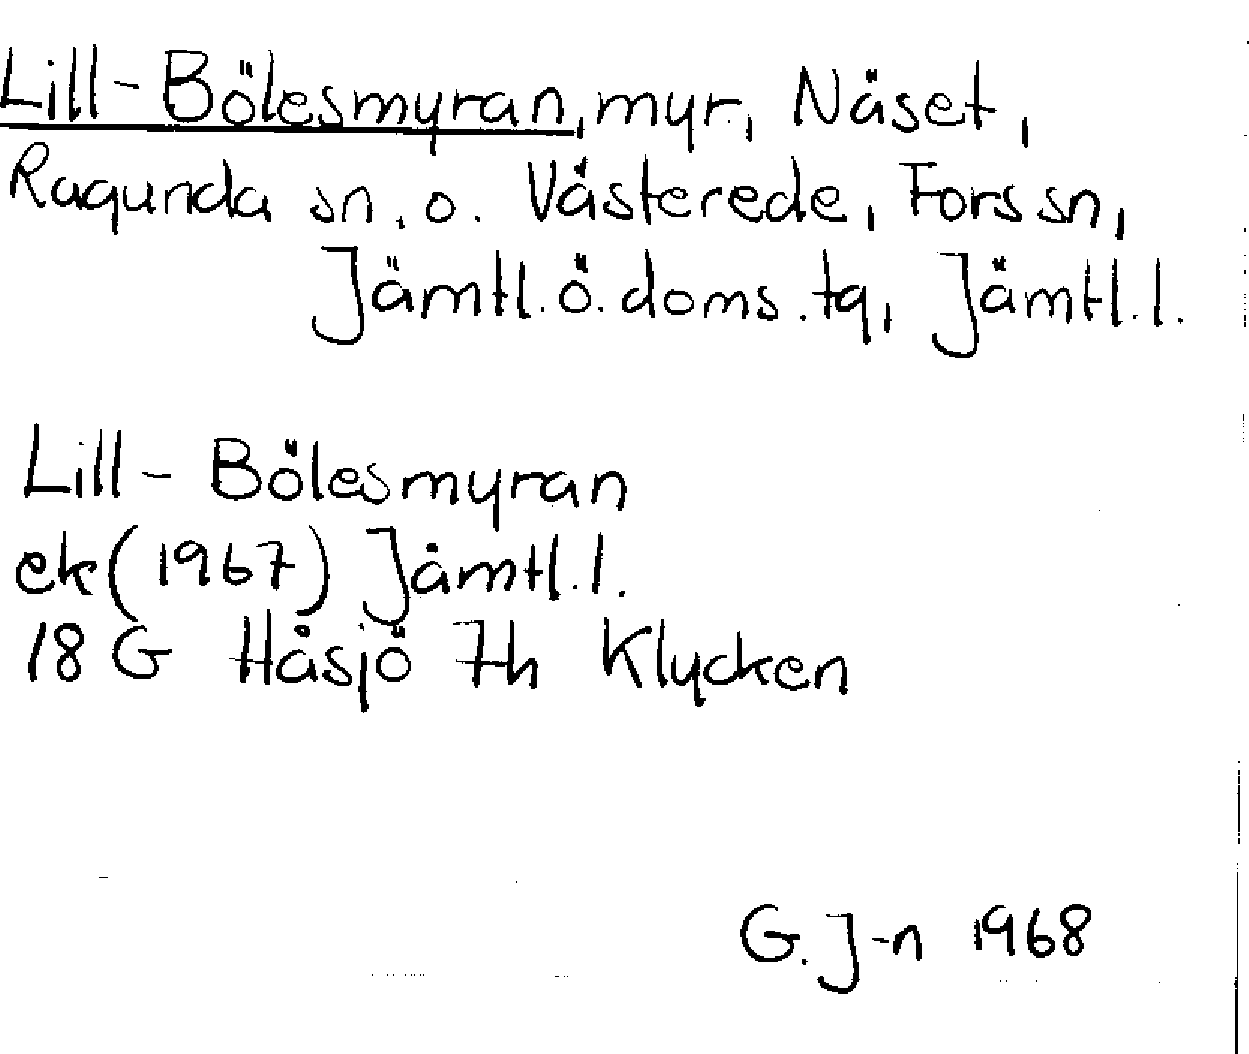 Lill-Bölesmyran, myr, Näset,
Ragunda sn. o. Västerede, Fors sn,
Jämtl. ö. doms. tg, Jämtl. l.
Lill-Bölesmyran
ek (1967) Jämtl. l.
18 G Håsjö 7h Klycken
G. J-n 1968